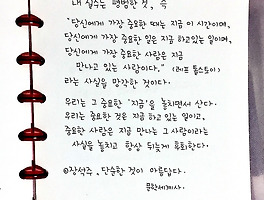 내 실수는 평범한 것, 즉
"당신에게 가장 중요한 때는 지금 이 시간이며,
당신에게 가장 중요한 일은 지금 하고있는 일이며,
당신에게 가장 중요한 사람은 지금
만나고 있는 사람이다." (레프 톨스토이)
라는 사실을 망각한 것이다.
우리는 그 중요한 '지금'을 놓치면서 산다.
우리는 중요한 것은 지금 하고 있는 일이고,
중요한 사람은 지금 만나는 그 사람이라는
사실을 놓치고 항상 뒤늦게 후회한다.
@장석주, 단순한 것이 아름답다.
문학세계사.